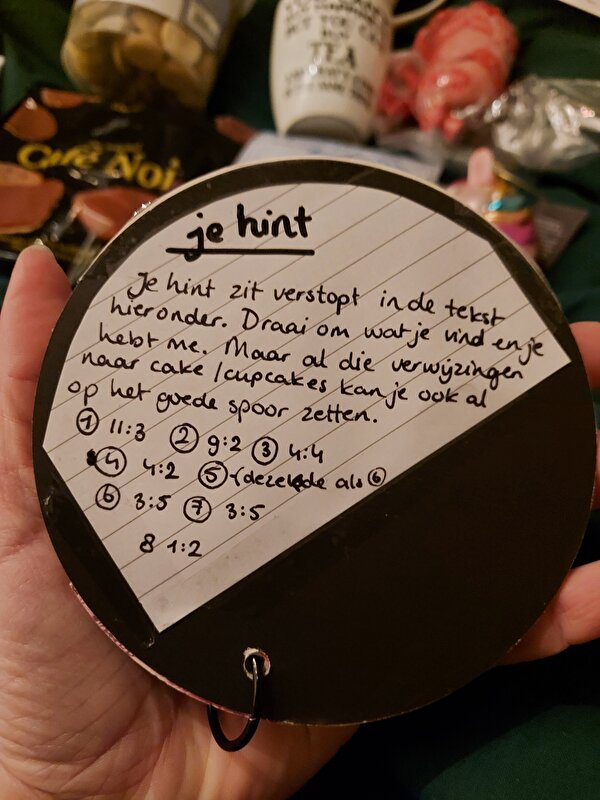 TEA
Café Noi
je hint
Je hint zit verstopt in de tekst
hieronder. Draai om wat je vind en je
hebt me. Maar al die verwijzingen
naar cake /cupcakes kan je ook al
op het goede spoor zetten.
① 11:3 ② 9:2 ③ 4:4
④ 4:2 ⑤ (dezelfde als ⑥
⑥ 3:5 ⑦ 3:5
8 1:2